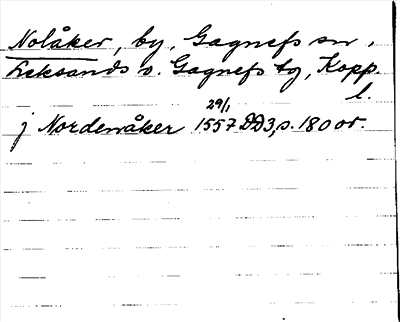 Nolåker, by, Gagnefs sn,
Leksands o. Gagnefs tg, Kopp.
l.
29/1
j Nordenåker 1557 DD3, s. 180 or.